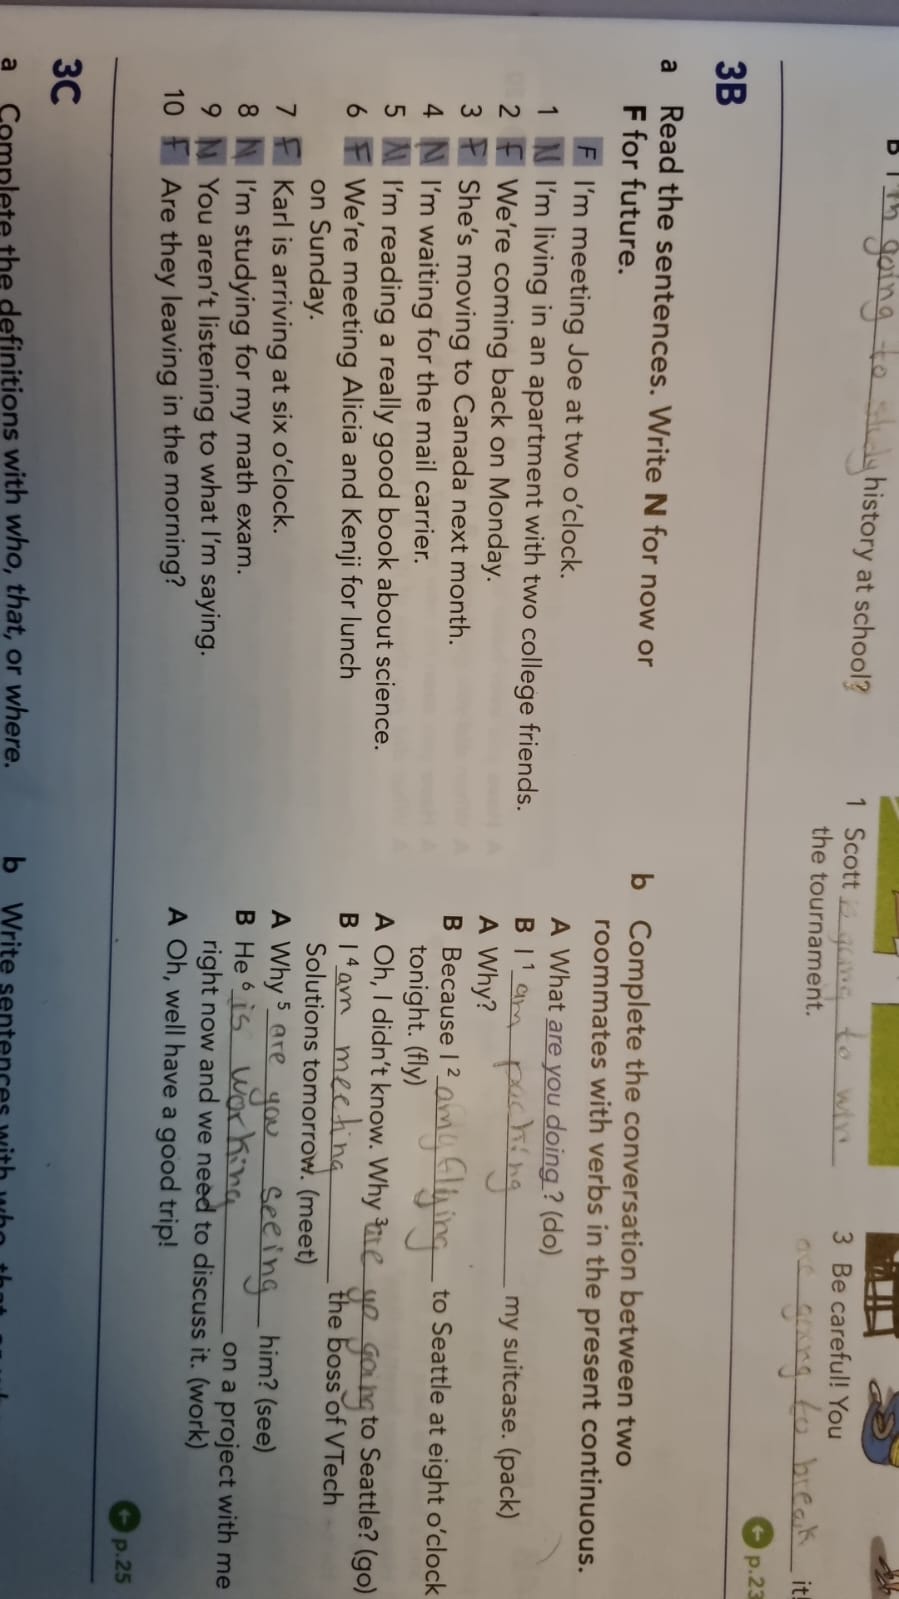 B I'm going to study history at school?
1 Scott is going to win
the tournament.
3 Be careful! You
are going to break it!
p.23
3B
a Read the sentences. Write N for now or
F for future.
F I'm meeting Joe at two o'clock.
1 N I'm living in an apartment with two college friends.
2 F We're coming back on Monday.
3 F She's moving to Canada next month.
4 N I'm waiting for the mail carrier.
5 N I'm reading a really good book about science.
6 F We're meeting Alicia and Kenji for lunch
on Sunday.
7 F Karl is arriving at six o'clock.
8 N I'm studying for my math exam.
9 N You aren't listening to what I'm saying.
10 F Are they leaving in the morning?
b Complete the conversation between two
roommates with verbs in the present continuous.
A What are you doing? (do)
B I 1 am packing my suitcase. (pack)
A Why?
B Because I 2 am flying to Seattle at eight o'clock
tonight. (fly)
A Oh, I didn't know. Why 3 are yo going to Seattle? (go)
B I 4 am meeting the boss of VTech
Solutions tomorrow. (meet)
A Why 5 are you seeing him? (see)
B He 6 is working on a project with me
right now and we need to discuss it. (work)
A Oh, well have a good trip!
p.25
3C
a Complete the definitions with who, that, or where.
b Write sentences with who, that